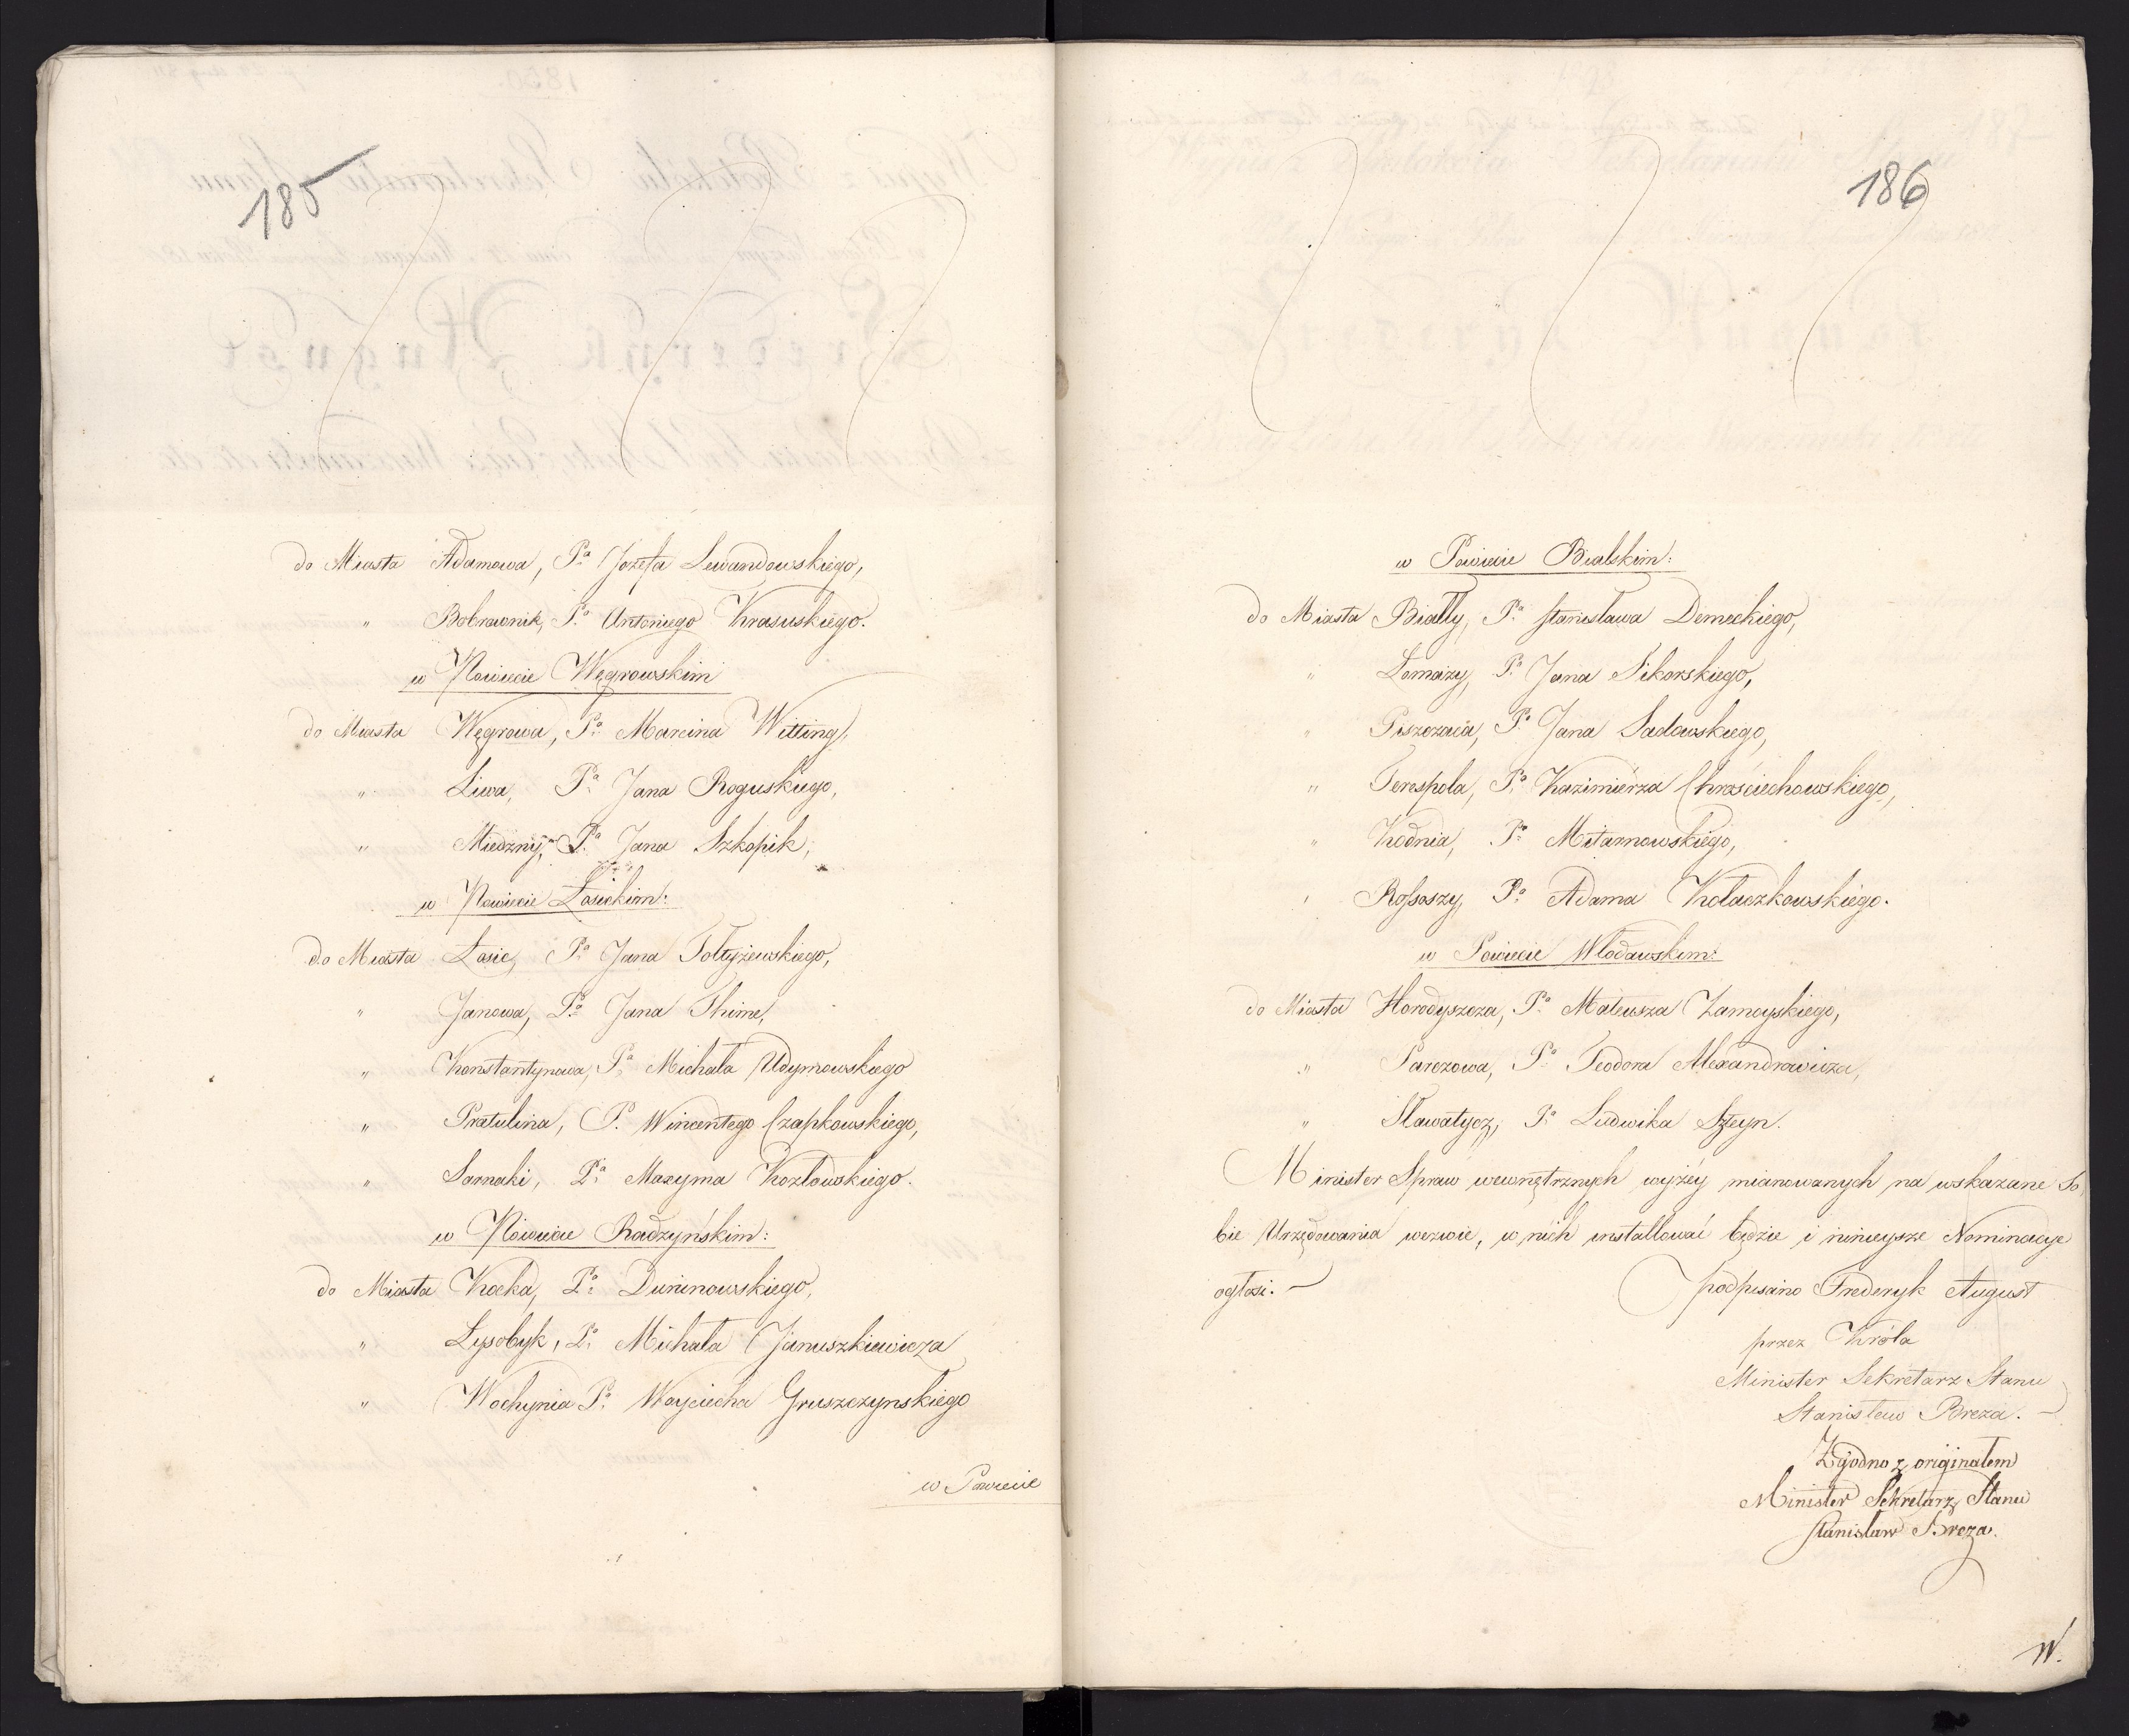 185
do Miasta Adamowa, Pa Jozefa Lewandowskiego,
" Bobrownik, Pa Antoniego Krasuskiego.
w Powiecie Węgrowskim
do Miasta Węgrowa, Pa Marcina Witting,
" Liwa, Pa Jana Roguskiego,
" Miedzny, Pa Jana Szkopik,
w Powiecie Łosickim:
do Miasta Łosic, Pa Jana Tołtyżewskiego,
" Janowa, Pa Jana Thime,
" Konstantynowa, Pa Michała Udymowskiego
" Pratulina, P. Wincentego Czapkowskiego,
" Sarnaki, Pa Maxyma Kozłowskiego.
w Powiecie Radzyńskim:
do Miasta Kocka, Pa Duninowskiego,
" Łysobyk, Pa Michała Januszkiewicza
" Wochynia Pa Woyciecha Gruszczynskiego
w Powiecie
186
w Powiecie Bialskim:
do Miasta Białły, Pa Stanisława Demeckiego,
" Łomazy, Pa Jana Sikorskiego,
" Piszczaca, Pa Jana Sadowskiego,
" Terespola, Pa Kazimierza Chrościechowskiego,
" Kodnia, Pa Mitarnowskiego,
" Rossoszy, Pa Adama Kołaczkowskiego.
w Powiecie Włodawskim:
do Miasta Horodyszcza, Pa Mateusza Zamoyskiego,
" Parczowa, Pa Teodora Alexandrowicza,
" Sławatycz, Pa Ludwika Szteyn.
Minister Spraw wewnętrznych wyżéy mianowanych na wskazane So,
bie Urzędowania wezwie, w nich installować będzie i ninieysze Nominacye
ogłosi. —
podpisano Frederyk August
przez Króla
Minister Sekretarz Stanu
Stanisław Breza. —
Zgodno z originałem
Minister Sekretarz Stanu
Stanisław Breza.
W.